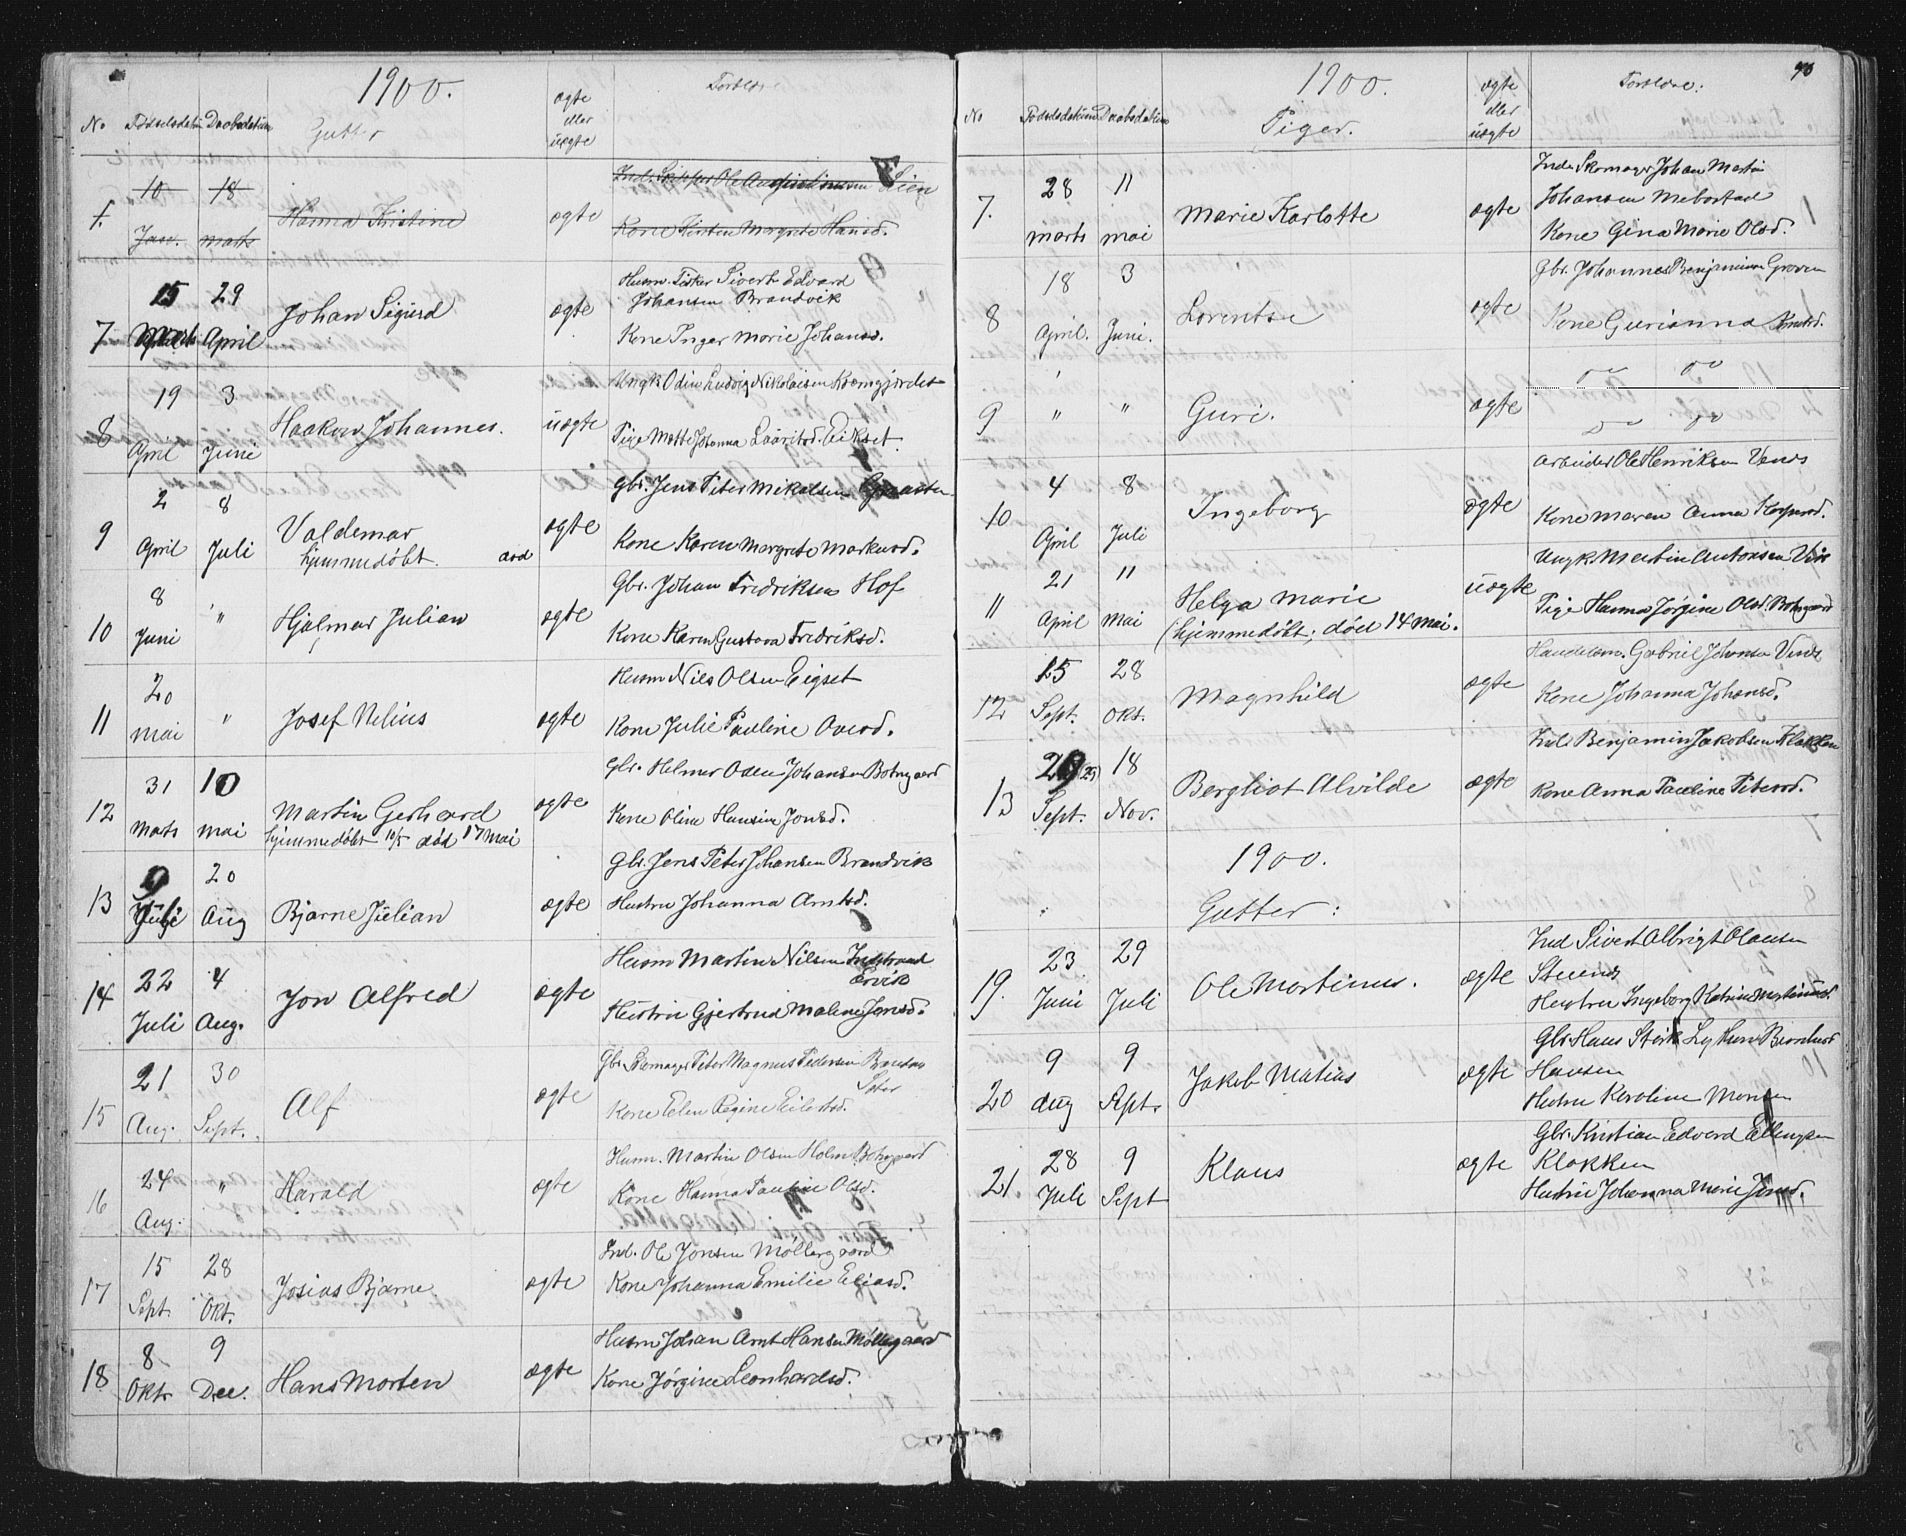 1900.
No Fødselsdatum Daabsdatum Gutter ægte eller uægte Forældre
1. 10 Jan. 18 marts Hanna Kristine ægte
Kone Kirsten Margrete Hansd.
7 15 Marts 29 April Johan Sigurd ægte Husm. Fisker Sivert Edvard
Johansen Brandvik
Kone Inger Marie Johansd.
8 19 April 3 Juni Haakon Johannes. uægte Ungk Odin Ludvig Nikolaisen
Pige Mette Johanna Lauritsd. Eikset
9 2 April 8 Juli Valdemar ægte Gbr. Jens Peter Mikalsen
hjemmedøbt. Kone Karen Margrete Markusd.
10 8 Juni " Hjalmar Julian ægte Gbr. Johan Fredriksen Hof
Kone Karen Gustava Fredriksd.
11 20 mai " Josef Nelius ægte Husm Nils Olsen Eigset
Kone Julie Pauline Overd.
12 31 Marts 10 mai Martin Gerhard ægte Gbr. Helmer Odin Johansen Botngaard
hjemmedøbt 10/5 død 17 mai Kone Oline Hansine Jonsd.
13 9 Juli 20 Aug Bjarne Julian ægte Gbr. Jens Peter Johansen Brandvik
Hustru Johanna Arntsd.
14 22 Juli 4 Aug. Jon Alfred ægte Husm Martin Nilsen Indstrand
Ervik
Hustru Gjertrud Maline Jonsd.
15 21 Aug. 30 Sept. Alf ægte Gbr. Skomager Peter Magnus Pedersen
Kone Elen Regine Eilertsd.
16 24 Aug. " Harald ægte Husm. Martin Olsen Holm Botngaard
Kone Hanna Pauline Olsd.
17 15 Sept. 28 Okt. Josias Bjarne. ægte Ind. Ole Jonsen Møllergaard
Kone Johanna Emilie Eliasd.
18 8 Oktr 9 Dec. Hans Morten ægte Husm Johan Arnt Hansen Møllegaard
Kone Jørgine Leonhardsd.
1900. 90
No Fødselsdatum Daabsdatum Piger. ægte eller uægte Forældre:
7. 28 marts 11 mai Marie Karlotte ægte Inds Skomager Johan Martin
Johansen Mebostad
Kone Gina Marie Olsd.
8 18 April. 3 Juni. Lorentse ægte Gbr. Johannes Benjaminsen Groven
Kone Gurianna Knutsd.
9 " " Guri. ægte
10 4 April 8 Juli Ingeborg ægte Arbeider Ole Henriksen
Kone Maren Anna Kaspersd.
11 21 April 11 mai Helga Marie uægte Ungk Martin Antonsen
(hjemmedøbt; død 14 mai. Pige Hanna Jørgine Olsd. Botngaard
12 15 Sept. 28 Okt. Magnhild ægte Handelsm. Gabriel Johansen
Kone Johanna Johansd.
13 29 (29) Sept. 18 Nov. Bergliot Alvilde ægte Inds Benjamin Jakobsen Klakken
Kone Anna Pauline Petersd.
1900.
Gutter:
19. 23 Juni 29 Juli Ole Martinus. ægte Ind Sivert Albrigt Olausen
Hustru Ingeborg Katrine Martinusd.
20 9 Aug 9 Sept. Jakob Matias ægte Gbr. Hans Størk Bernhard
Hansen
Hustru Karoline Monsen
21. 28 Juli 9 Sept Klaus ægte Gbr. Kristian Edvard Ellingsen
Klakken
Hustru Johanna Marie Jensd.